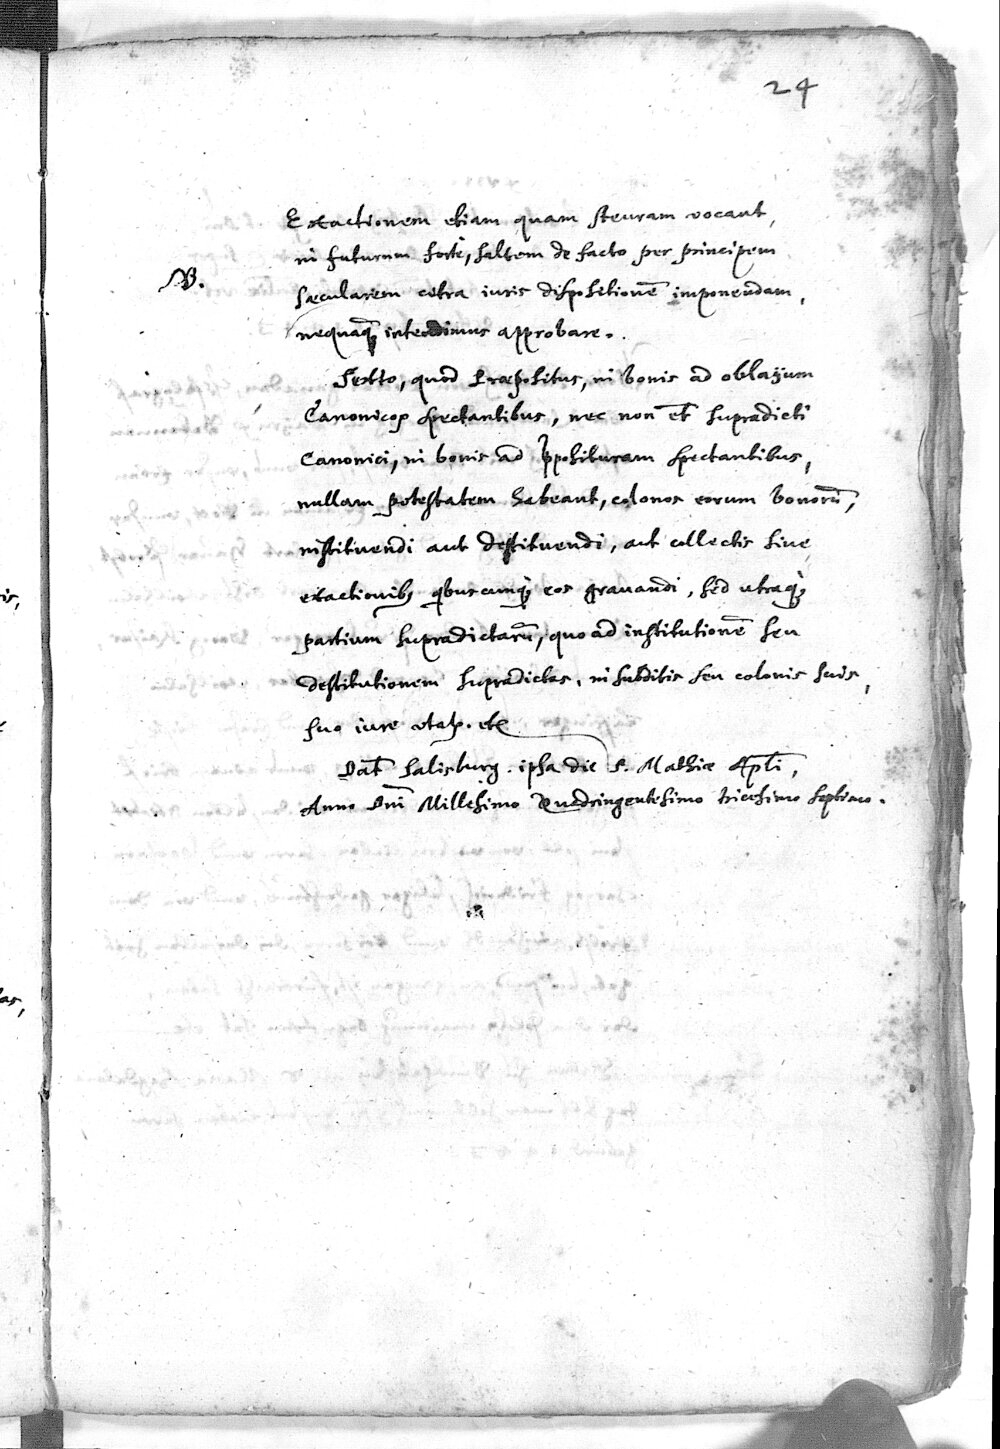 24
Exactionem etiam quam steuram vocant,
in futurum fortè, saltem de facto per principem
NB.
sæcularem citra iuris dispositionē imponendam,
nequaq̃ intendimus approbare.
Sexto, quod Præpositus, in bonis ad oblaẏum
Canonicoꝝ spectantibus, nec non et supradicti
Canonici, in bonis ad p̄posituram spectantibus,
nullam potestatem habeant, colonos eorum bonorū,
instituendi aut destituendi, aut collectis siue
exactionibꝫ q̄buscumqꝫ eos grauandi, sed utraqꝫ
partium supradictarū, quo ad institutionē seu
destitutionem supradictas, in subditis seu colonis suis,
suo iure utat. etc
Dat̄ Salisburg. ipsa die S. Mathiæ Apl̄i,
Anno Dn̄i Millesimo Quadringentesimo tricesimo septimo.
is,
as,